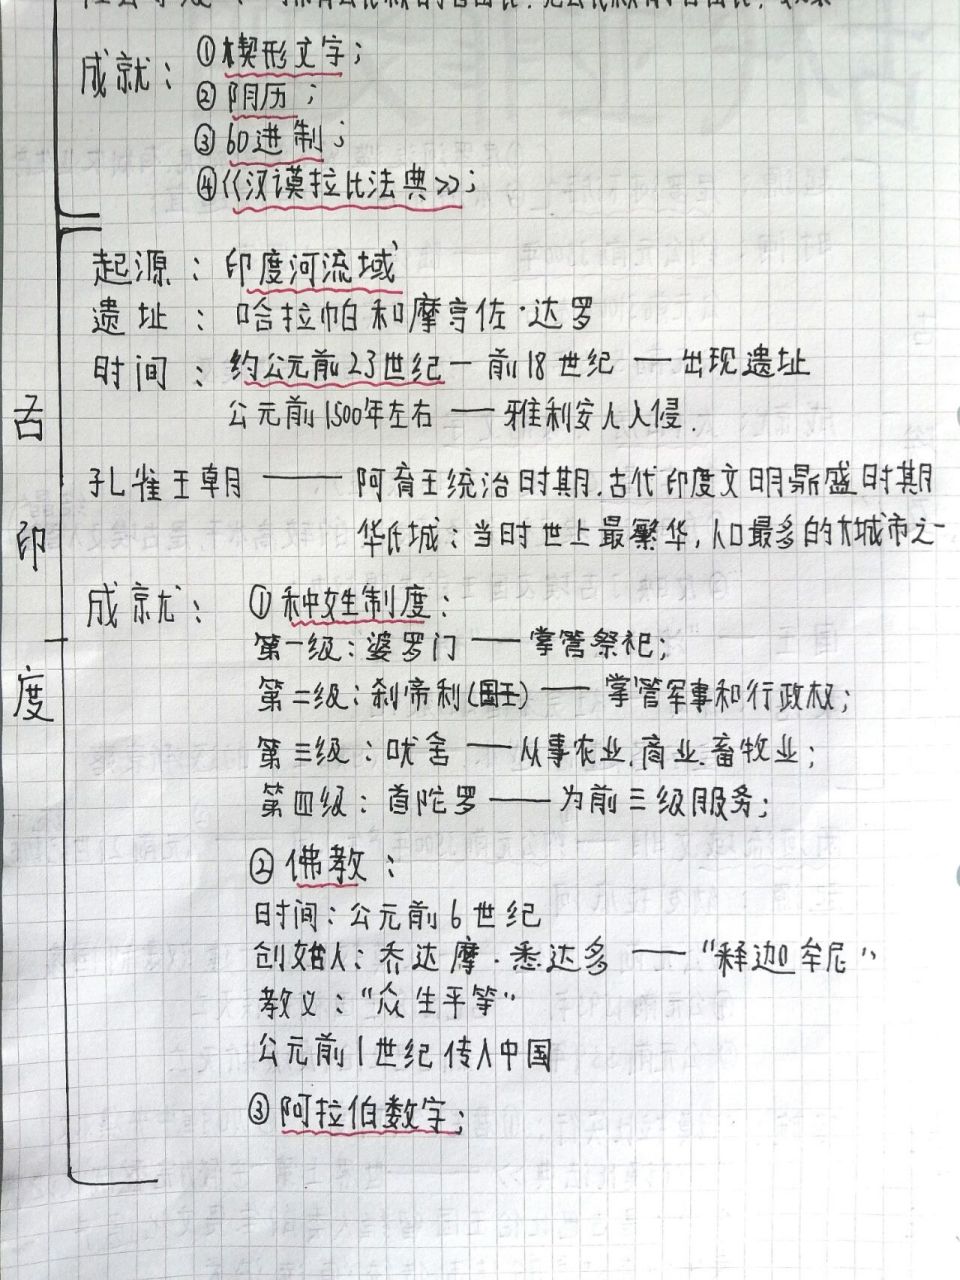 成就：①楔形文字；
②阴历；
③60进制；
④《汉谟拉比法典》；
古印度
起源：印度河流域
遗址：哈拉帕和摩亨佐·达罗
时间：约公元前23世纪—前18世纪——出现遗址
公元前1500年左右——雅利安人入侵.
孔雀王朝——阿育王统治时期.古代印度文明鼎盛时期
华氏城：当时世上最繁华,人口最多的大城市之一
成就：①种姓制度：
第一级：婆罗门——掌管祭祀；
第二级：刹帝利(国王)——掌管军事和行政权；
第三级：吠舍——从事农业.商业.畜牧业；
第四级：首陀罗——为前三级服务；
②佛教：
时间：公元前6世纪
创始人：乔达摩·悉达多——“释迦牟尼”
教义：“众生平等”
公元前1世纪传入中国
③阿拉伯数字；